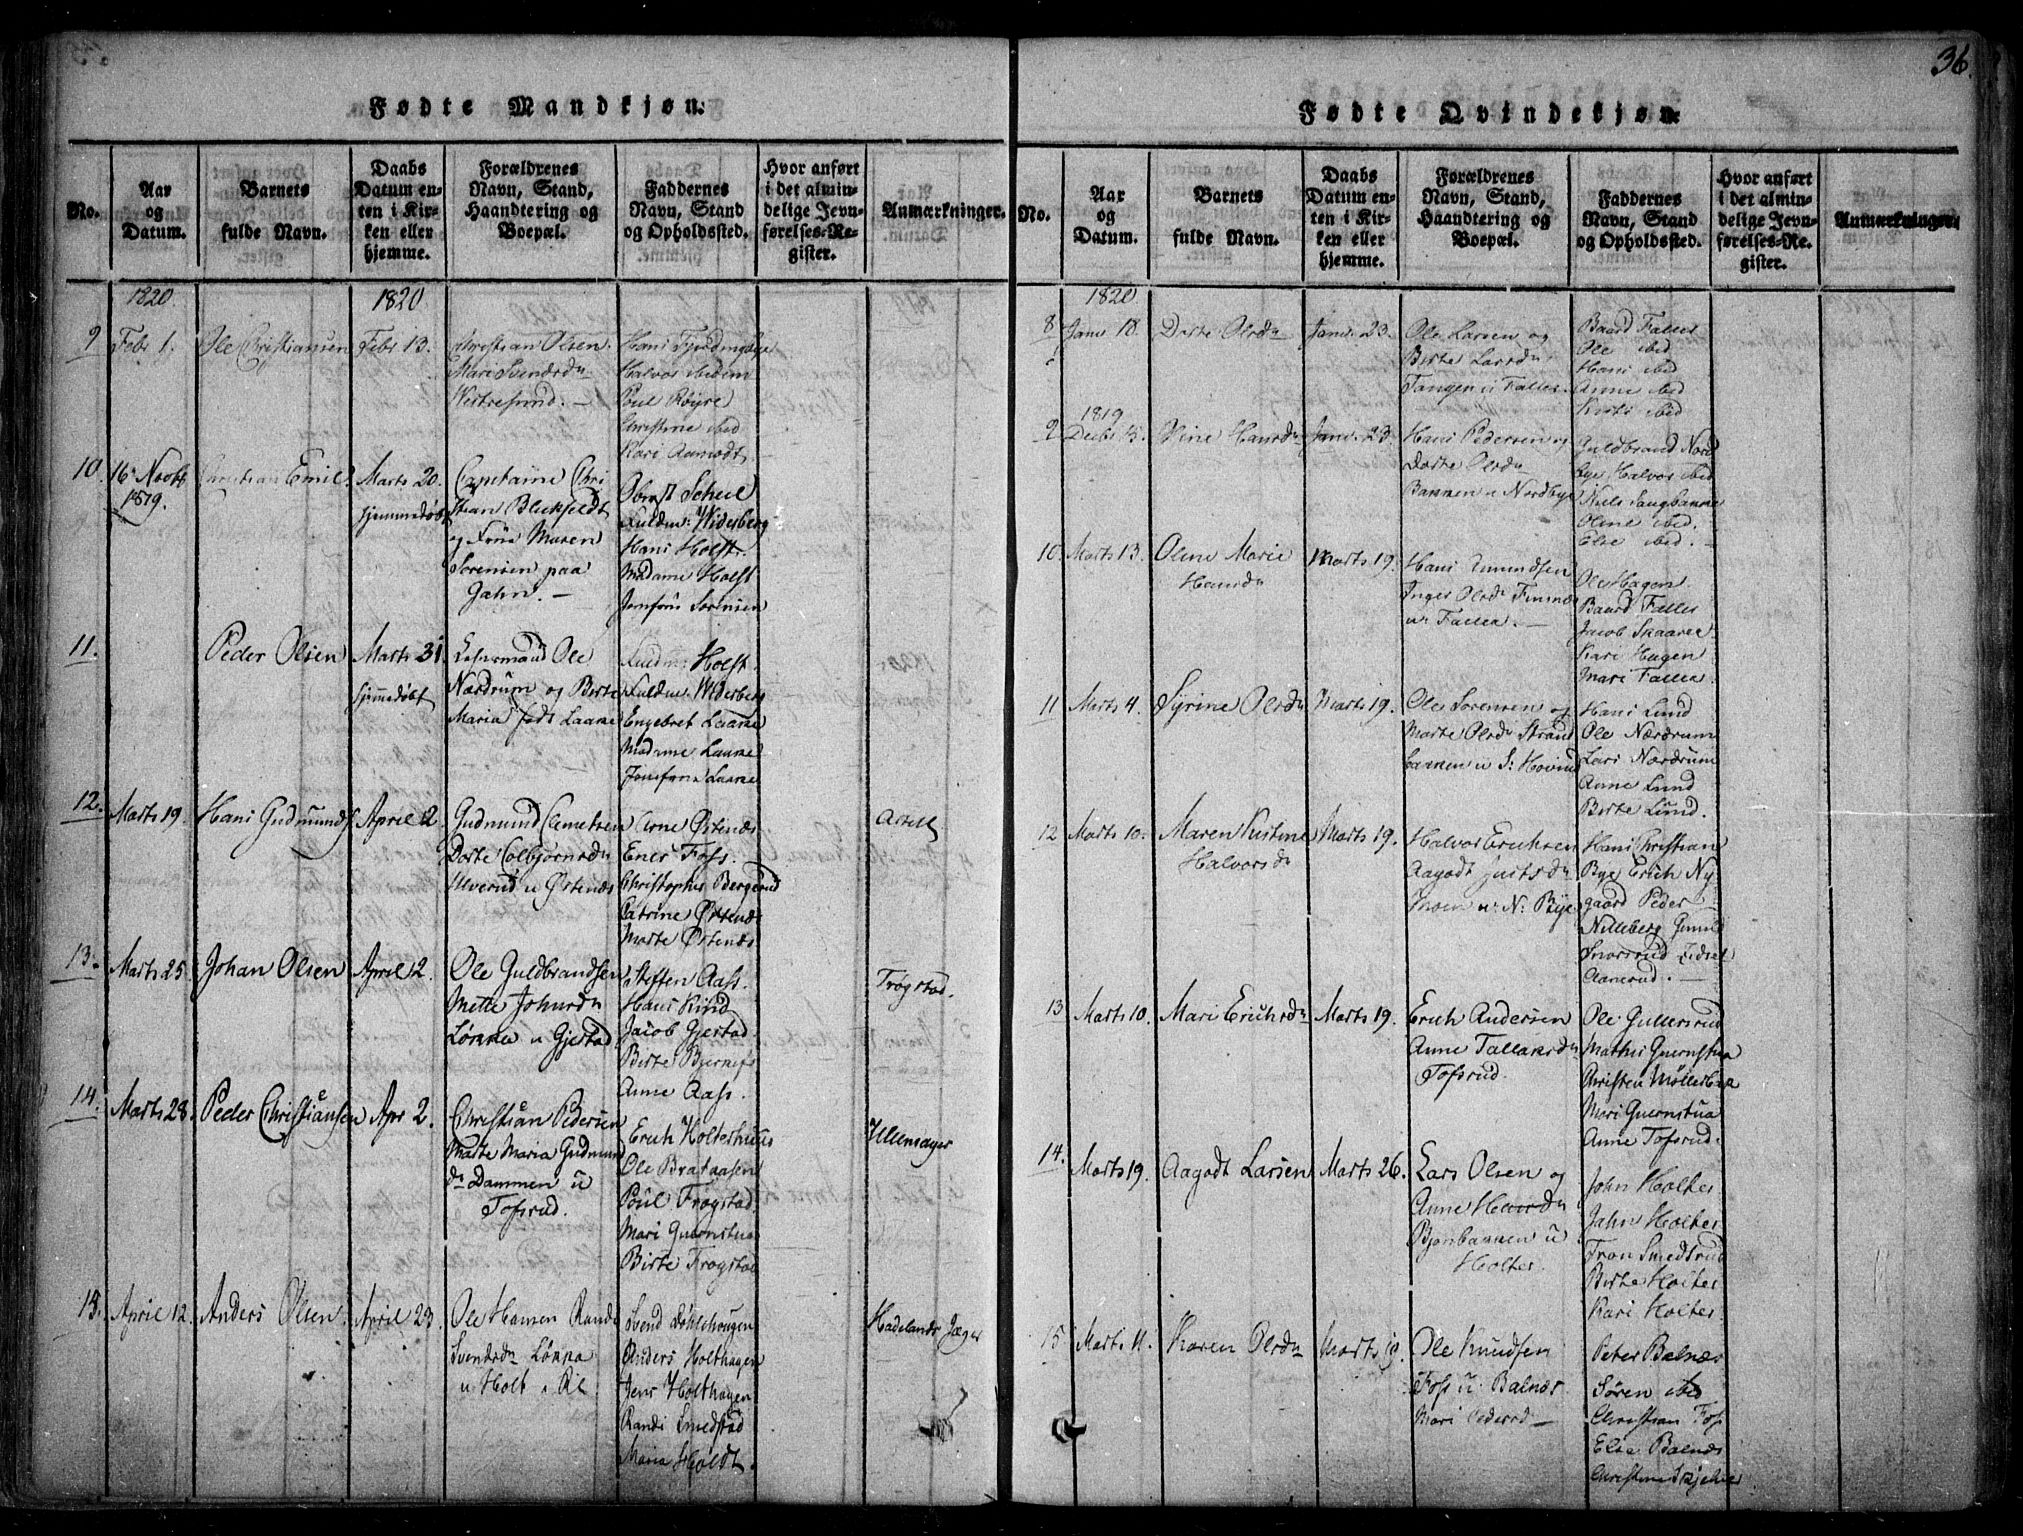 36.
Fødte Mandkjøn.
No.
Aar og Datum.
Barnets fulde Navn.
Daabs Datum enten i Kirken eller hjemme.
Forældrenes Navn, Stand, Haandtering og Boepæl.
Faddernes Navn, Stand og Opholdssted.
Hvor anført i det almindelige Jevnførelses-Register.
Anmærkninger.
1820.
1820
9
Febr 1.
Ole Christiansen
Febr 13.
Christian Olsen
Mari Svendsdr
Vestresund. –
Halvor ibidem
Poul Røyre
Christine ibid
Kari Aamodt.
10.
16 Novbr
1819.
Christian Emil
Marts 20.
hjemmedøbt
Capitaine Chri
stian Blickfeldt
og Frue Maren
Sorensen paa
Jahn. –
Obrist Scheel
Fuldm: Widerberg
Hans Holst.
Madame Holst
Jomfrue Sorensen
11.
Peder Olsen
Marts 31
hjemmedøbt
Lehnsmand Ole
Nærdrum og Birte
Maria født Laane
Fuldm: Holst.
Fuldm: Widerberg
Engebret Laane
Madame Laane
Jomfrue Laane
12.
Marts 19.
Hans Gudmunds
April 2
Gudmund Clemetsen
Dorte Colbjørnsdr
Ulverud u Østenæs
Arne Østenæs
Ener Foss.
Christopher Bergerud
Catrine Østenæs
Marte Østenæs.
Artell
13.
Marts 25
Johan Olsen
April 2.
Ole Guldbrandsen
Mette Johnsdr
Lønna u Gjestad
Steffen Aass.
Hans Kind
Jacob Gjestad.
Birte Bjernefs
Anne Aass.
Trøgstad.
14.
Marts 28.
Peder Christiansen
Apr 2.
Christian Pedersen
Marte Maria Gudmund
dr Dammen u
Tofsrud.
Erich Holterhuus
Ole Brataasen
Poul Frogstad
Mari Guernstua
Birte Frogstad
15.
April 12.
Anders Olsen.
April 23.
Ole Hansen Randi
Svendsdr Lønna
u Holt
Svend Døhlehougen
Anders Holthagen
Jens Holthagen
Randi Smedstad
Maria Holdt.
Hadelands Jæger
Fødte Qvindekjøn.
No.
Aar og Datum.
Barnets fulde Navn.
Daabs Datum enten i Kirken eller hjemme.
Forældrenes Navn, Stand, Haandtering og Boepæl.
Faddernes Navn, Stand og Opholdssted.
Hvor anført i det almindelige Jevnførelses-Re. gister.
Anmærkninger.
1820
8
Janv 18.
Dorte Olsdr
Janv. 23.
Ole Larsen og
Birte Larsdr
Tangen u Falles.
Baard Falles
Ole ibid
Hans ibid
Anne ibid
Kirsti ibid
1819
9
Decbr 15.
Hansdr
Janv. 23.
Hans Pedersen og
Dorte Olsdr
Bakken u Nordbye
Guldbrand Nord
bye Halvor ibid
Olme ibid.
Else ibid. –
10.
Marts 13.
Oline Marie
Hansdr
Marts 19.
Hans Amundsen
Inger Olsdr
Ole Hagen
Baard Falles
Jacob Skaarer
Kari Hagen
Mari Falla.
11
Marts 4.
Syrine Olsdr
Marts 19.
Ole Sorensen og
Marte Olsdr Strand
bakken u S: Hovind
Hans Lund
Ole Nærdrum
Lars Nærdrum
Anne Lund
Birte Lund.
12
Marts 10.
Maren Kistine
Halvorsdr
Marts 19.
Halvor Erichsen
Aagodt Justsdr
Moen u: N: Bye
Hans Christian
Bye Erich Ny
gaard Peder
Nilleberg Gunild
Aanerud. –
13
Marts 10.
Mari Erichsdr
Marts 19.
Erich Andersen
Anne Tallaksdr
Tofsrud.
Ole Gullersrud
Mathis Guernstua
Christen Møllerbak
Mari Guernstua
Anne Tofsrud.
14.
Marts 19.
Aagodt Larsen
Marts 26.
Lars Olsen og
Anne Hansdr
Bjonbakken u
Holter.
John Holter
Jahn Holter
Tron Smedsrud
Birte Holter
Kari Holter
15
Marts 11.
Karen Olsdr
Marts 19.
Ole Knudsen
Foss u: Balnær
Mari Pedersd –
Peter Balnær
Søren ibid
Christian Foss
Else Balnæs